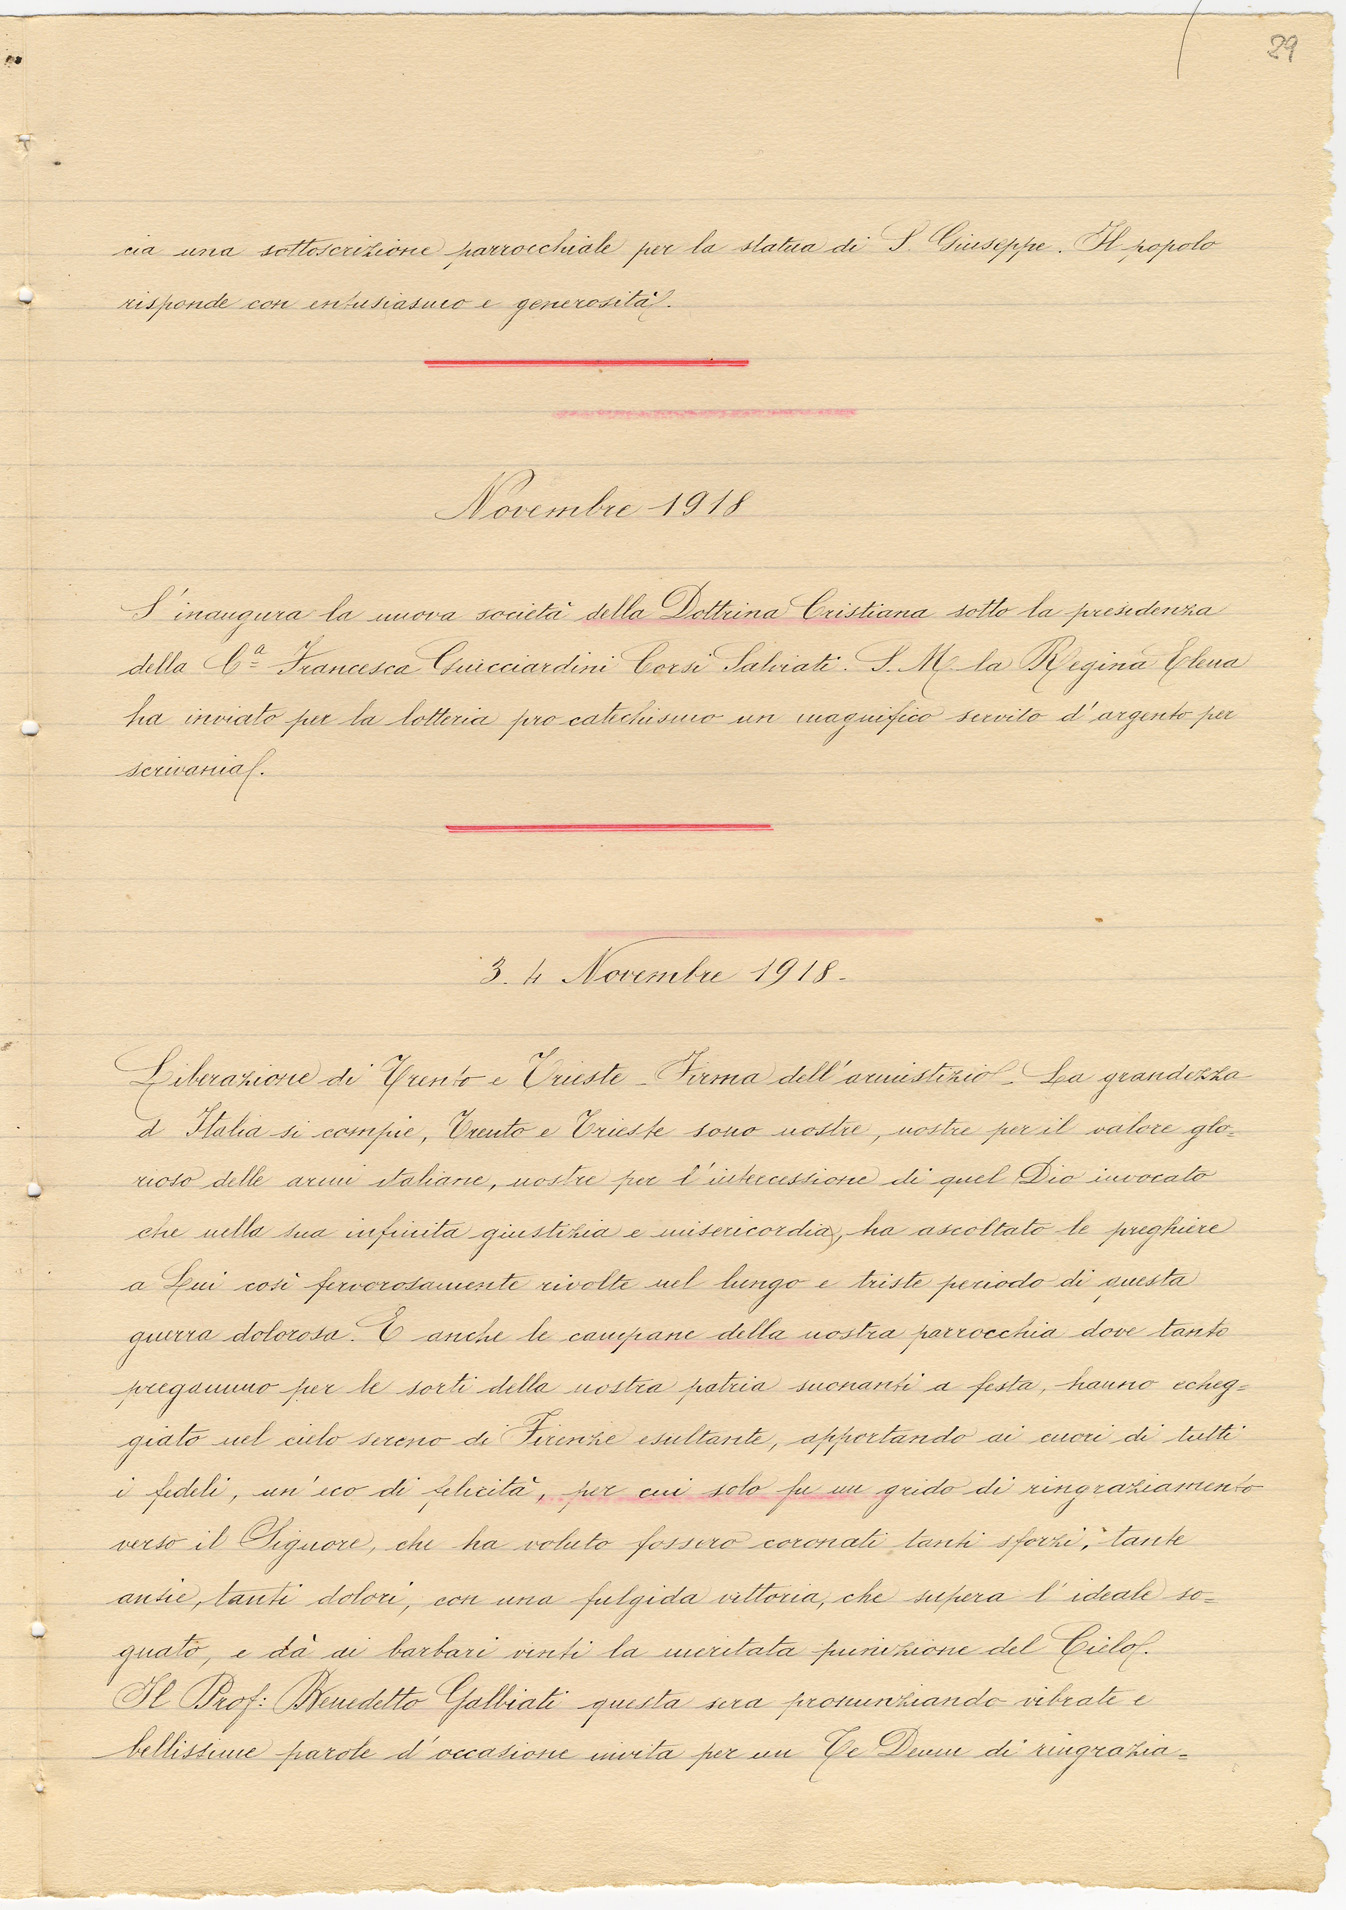 29
cia una sottoscrizione parrocchiale per la statua di S. Giuseppe. Il popolo
risponde con entusiasmo e generosità.
Novembre 1918
S'inaugura la nuova società della Dottrina Cristiana sotto la presidenza
della C.ª Francesca Guicciardini Corsi Salviati. S. M. la Regina Elena
ha inviato per la lotteria pro catechismo un magnifico servito d'argento per
scrivania.
3. 4 Novembre 1918.
Liberazione di Trento e Trieste - Firma dell'armistizio. La grandezza
d Italia si compie, Trento e Trieste sono nostre, nostre per il valore glo=
rioso delle armi italiane, nostre per l'intercessione di quel Dio invocato
che nella sua infinita giustizia e misericordia, ha ascoltato le preghiere
a Lui così fervorosamente rivolte nel lungo e triste periodo di questa
guerra dolorosa. E anche le campane della nostra parrocchia dove tanto
pregammo per le sorti della nostra patria suonanti a festa, hanno echeg=
giato nel cielo sereno di Firenze esultante, apportando ai cuori di tutti
i fedeli, un'eco di felicità, per cui solo fu un grido di ringraziamento
verso il Signore, che ha voluto fossero coronati tanti sforzi, tante
ansie, tanti dolori, con una fulgida vittoria, che supera l'ideale so=
gnato, e dà ai barbari venti la meritata punizione del Cielo.
Il Prof: Benedetto Galbiati questa sera pronunziando vibrate e
bellissime parole d'occasione invita per un Te Deum di ringrazia=